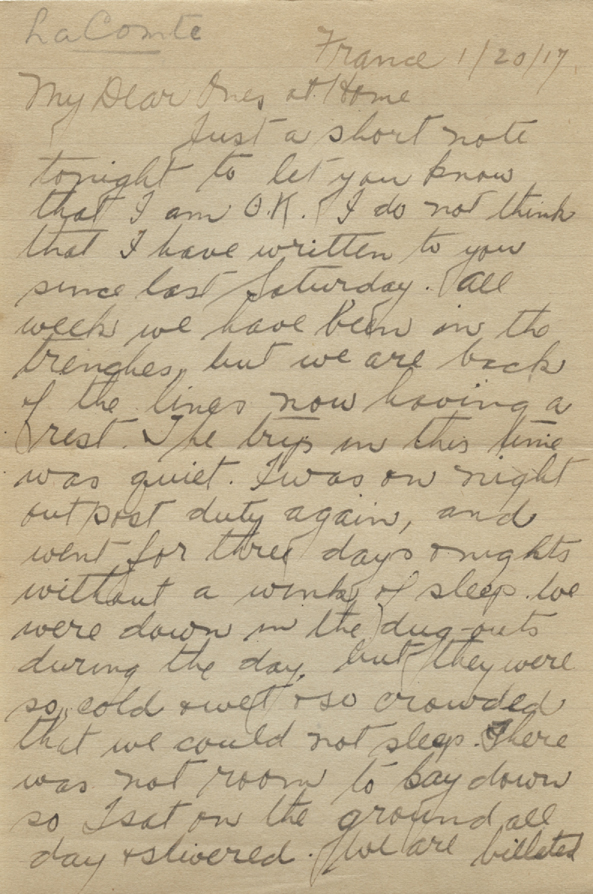 LaComte
France 1/20/17.
My Dear Ones at Home
Just a short note
tonight to let you know
that I am O.K. I do not think
that I have written to you
since last Saturday. All
week we have been in the
trenches, but we are back
of the lines now having a
rest. The trip in this time
was quiet. I was on night
outpost duty again, and
went for three days & nights
without a wink of sleep. We
were down in the dug-outs
during the day, but they were
so cold & wet & so crowded
that we could not sleep. There
was not room to lay down
so I sat on the ground all
day & shivered. We are billeted